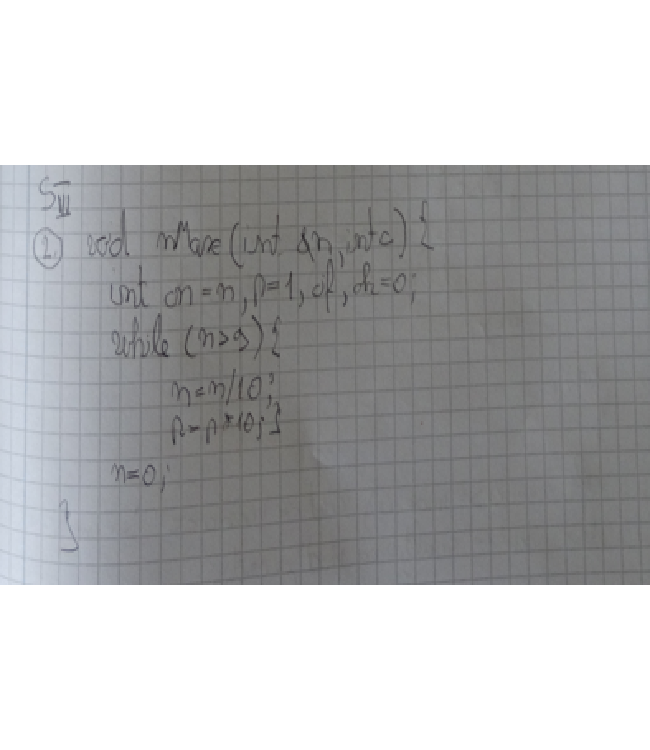 S III
2. void nMare(int &n, int c) {
int cn=n, p=1, cf, ok=0;
while (n>9) {
n=n/10;
p=p*10; }
n=0;
}